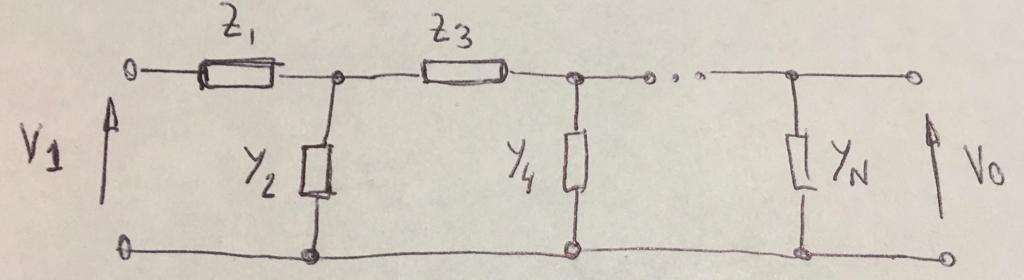 Z1 Z3
V1 Y2 Y4 YN V0